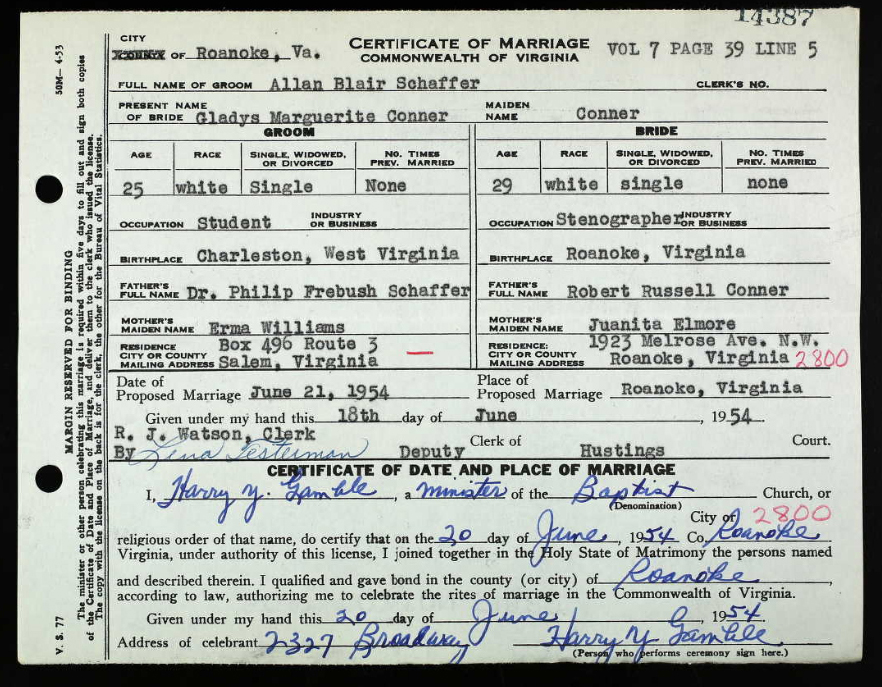 14387
CITY
COUNTY OF Roanoke, Va. CERTIFICATE OF MARRIAGE VOL 7 PAGE 39 LINE 5
COMMONWEALTH OF VIRGINIA
FULL NAME OF GROOM Allan Blair Schaffer CLERK'S NO.
PRESENT NAME OF BRIDE Gladys Marguerite Conner MAIDEN NAME Conner
GROOM BRIDE
AGE RACE SINGLE, WIDOWED, OR DIVORCED NO. TIMES PREV. MARRIED AGE RACE SINGLE, WIDOWED, OR DIVORCED NO. TIMES PREV. MARRIED
25 white Single None 29 white single none
OCCUPATION Student INDUSTRY OR BUSINESS OCCUPATION Stenographer INDUSTRY OR BUSINESS
BIRTHPLACE Charleston, West Virginia BIRTHPLACE Roanoke, Virginia
FATHER'S FULL NAME Dr. Philip Frebush Schaffer FATHER'S FULL NAME Robert Russell Conner
MOTHER'S MAIDEN NAME Erma Williams MOTHER'S MAIDEN NAME Juanita Elmore
RESIDENCE Box 496 Route 3 RESIDENCE: 1923 Melrose Ave. N.W.
CITY OR COUNTY MAILING ADDRESS Salem, Virginia — CITY OR COUNTY MAILING ADDRESS Roanoke, Virginia 2800
Date of Proposed Marriage June 21, 1954 Place of Proposed Marriage Roanoke, Virginia
Given under my hand this 18th day of June, 1954
R. J. Watson, Clerk
By Lena Testerman Deputy Clerk of Hustings Court.
CERTIFICATE OF DATE AND PLACE OF MARRIAGE
I, Harry Y. Gamble, a minister of the Baptist Church, or
(Denomination)
City of 2800
religious order of that name, do certify that on the 20 day of June, 1954 Co. Roanoke
Virginia, under authority of this license, I joined together in the Holy State of Matrimony the persons named
and described therein. I qualified and gave bond in the county (or city) of Roanoke,
according to law, authorizing me to celebrate the rites of marriage in the Commonwealth of Virginia.
Given under my hand this 20 day of June, 1954
Address of celebrant 2327 Broadway Harry Y. Gamble
(Person who performs ceremony sign here.)
50M—4-53
V. S. 77
MARGIN RESERVED FOR BINDING
The minister or other person celebrating this marriage is required within five days to fill out and sign both copies
of the Certificate of Date and Place of Marriage, and deliver them to the clerk who issued the license.
The copy with the license on the back is for the clerk, the other for the Bureau of Vital Statistics.